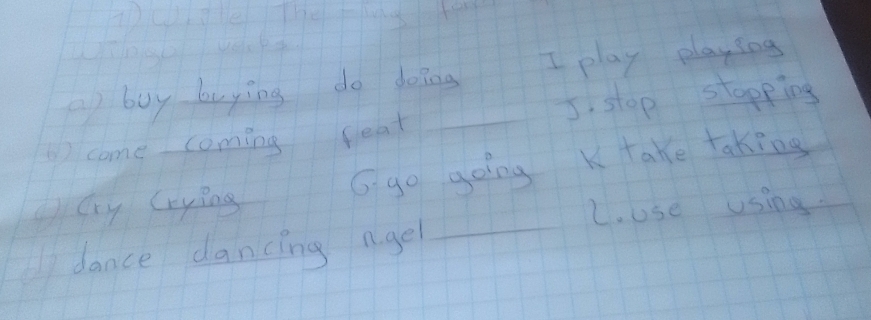 1) Write the -ing
a) buy buying do doing I play playing
b) come coming feat J. stop stopping
c) Cry Crying G. go going K take taking
d) dance dancing ngel L. use using.